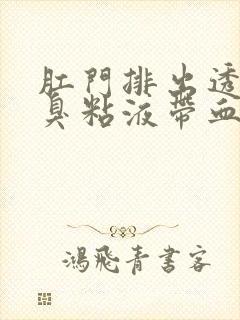 肛門排出透
臭粘液帶血
鴻飛青書客